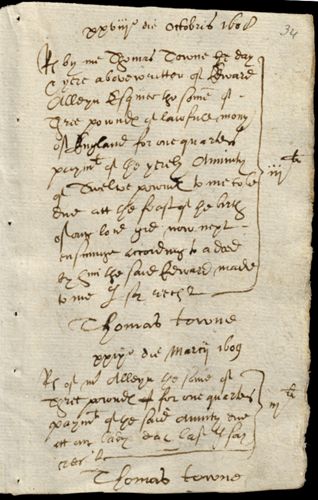 xxviij die Octobris 1608
34
Rd by me Thomas Towne the day
& yere above written of Edward
Alleyn Esquier the some of
three poundes of lawfull mony
of England for one quarters
paymt of the yerely Annuity
of Twelve poundes to me to be
due att the feast of the birth
of our lord god now next
ensuinge according to a deed
by him the said Edward made
to me I say recd
iij li
Thomas towne
die Marcij 1609
Rd of mr Alleyn the some of
three poundes for one quarters
paymt of the said Annuity due
att our lady day last I say
recd
iij li
Thomas towne